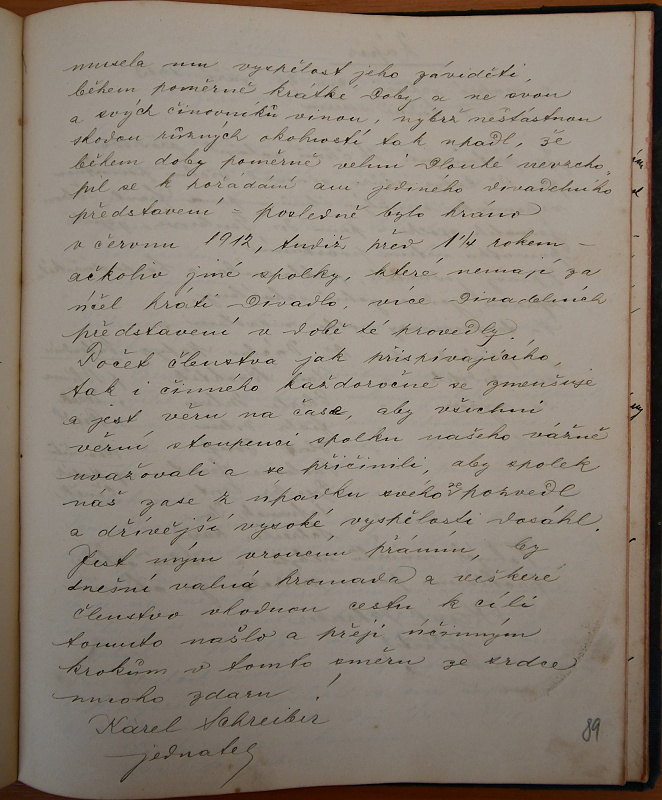 musela mu vyspělost jeho záviděti,
během poměrně krátké doby a ne svou
a svých činovníků vinou, nýbrž nešťastnou
shodou různých okolností tak upadl, že
během doby poměrně velmi dlouhé nevzcho-
pil se k pořádání ani jediného divadelního
představení – posledně bylo hráno
v červnu 1912, tudíž před 1¼ rokem –
ačkoliv jiné spolky, které nemají za
účel hráti divadlo, více divadelních
představení v době té provedly.
Počet členstva jak přispívajícího,
tak i činného každoročně se zmenšuje
a jest věru na čase, aby všichni
věrní stoupenci spolku našeho vážně
uvažovali a se přičinili, aby spolek
náš zase z úpadku svého se pozvedl
a dřívější vysoké vyspělosti dosáhl.
Jest mým vroucím přáním, by
dnešní valná hromada a veškeré
členstvo vhodnou cestu k cíli
tomuto našlo a přeji účinným
krokům v tomto směru ze srdce
mnoho zdaru!
Karel Schreiber
jednatel
89